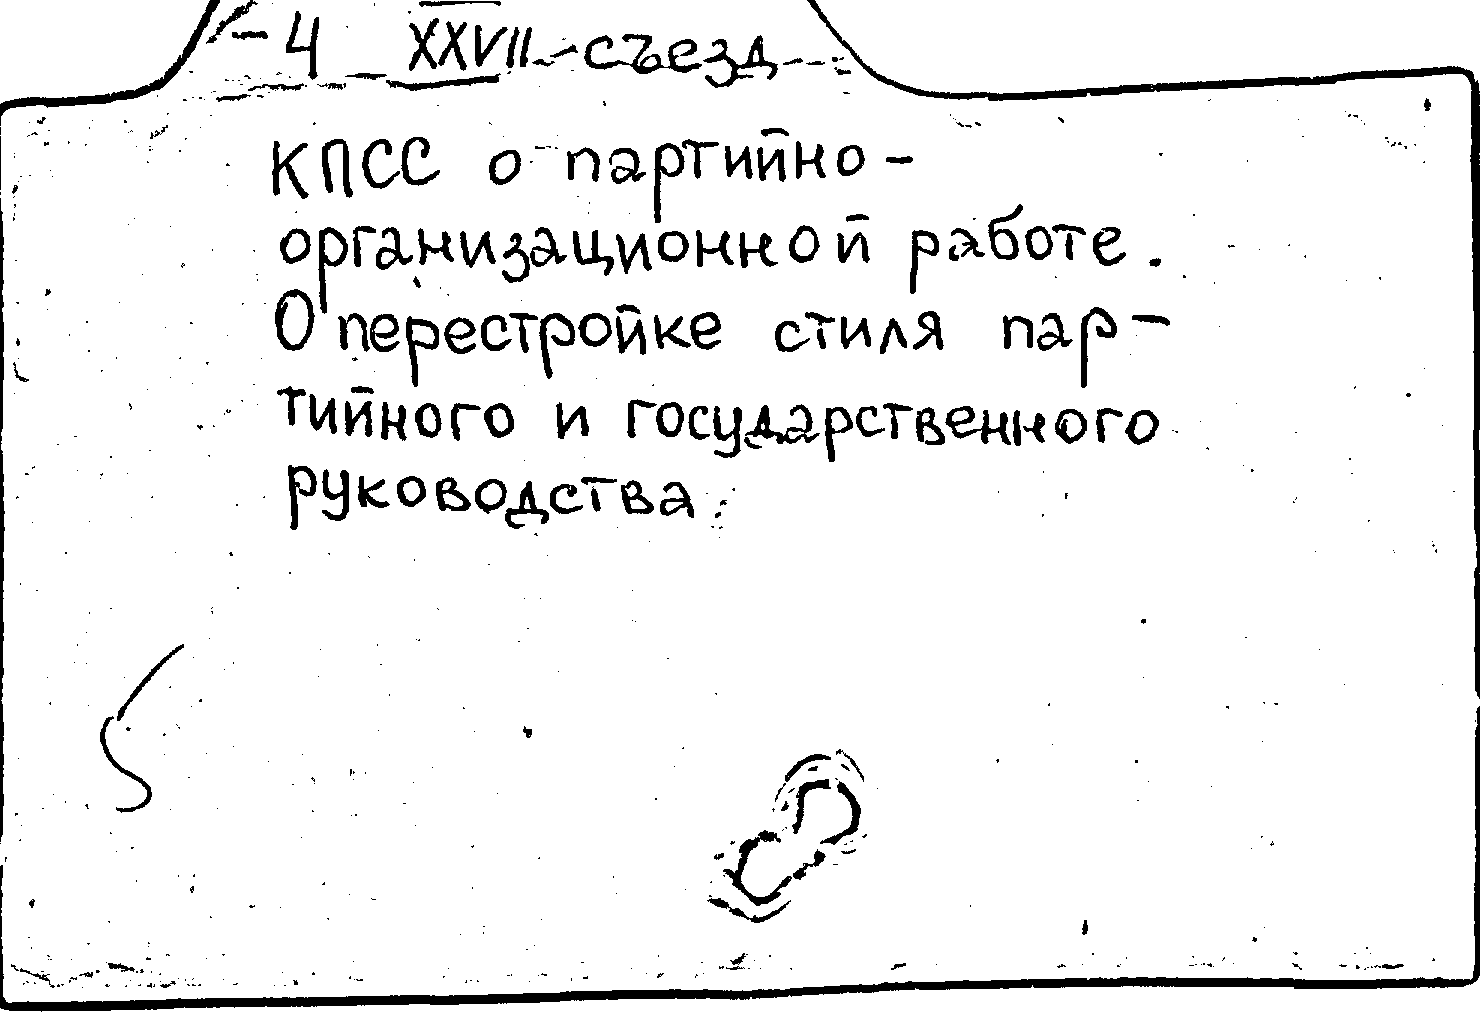 -4 XXVII съезд
КПСС о партийно-
организационной работе.
О перестройке стиля пар-
тийного и государственного
руководства